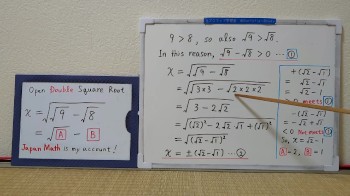 Open Double Square Root
x = √(√9 - √8)
= √A - B
Japan Math is my account!
9 > 8, so also √9 > √8.
In this reason, √9 - √8 > 0 ... ①
x = √(√9 - √8)
= √(√(3×3) - √(2×2×2))
= √(3 - 2√2)
= √((√2)² - 2√2·√1 + (√1)²)
= √((√2 - √1)²)
x = ±(√2 - √1) ... ②
+(√2 - √1)
= √2 - √1
= √2 - 1
> 0 meets ①
-(√2 - √1)
= -√2 + √1
< 0 Not meets ①
So, x = √2 - 1
A = 2, B = 1